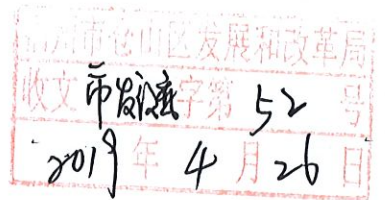 福州市仓山区发展和改革局
收文市发改字第52号
2019年4月26日